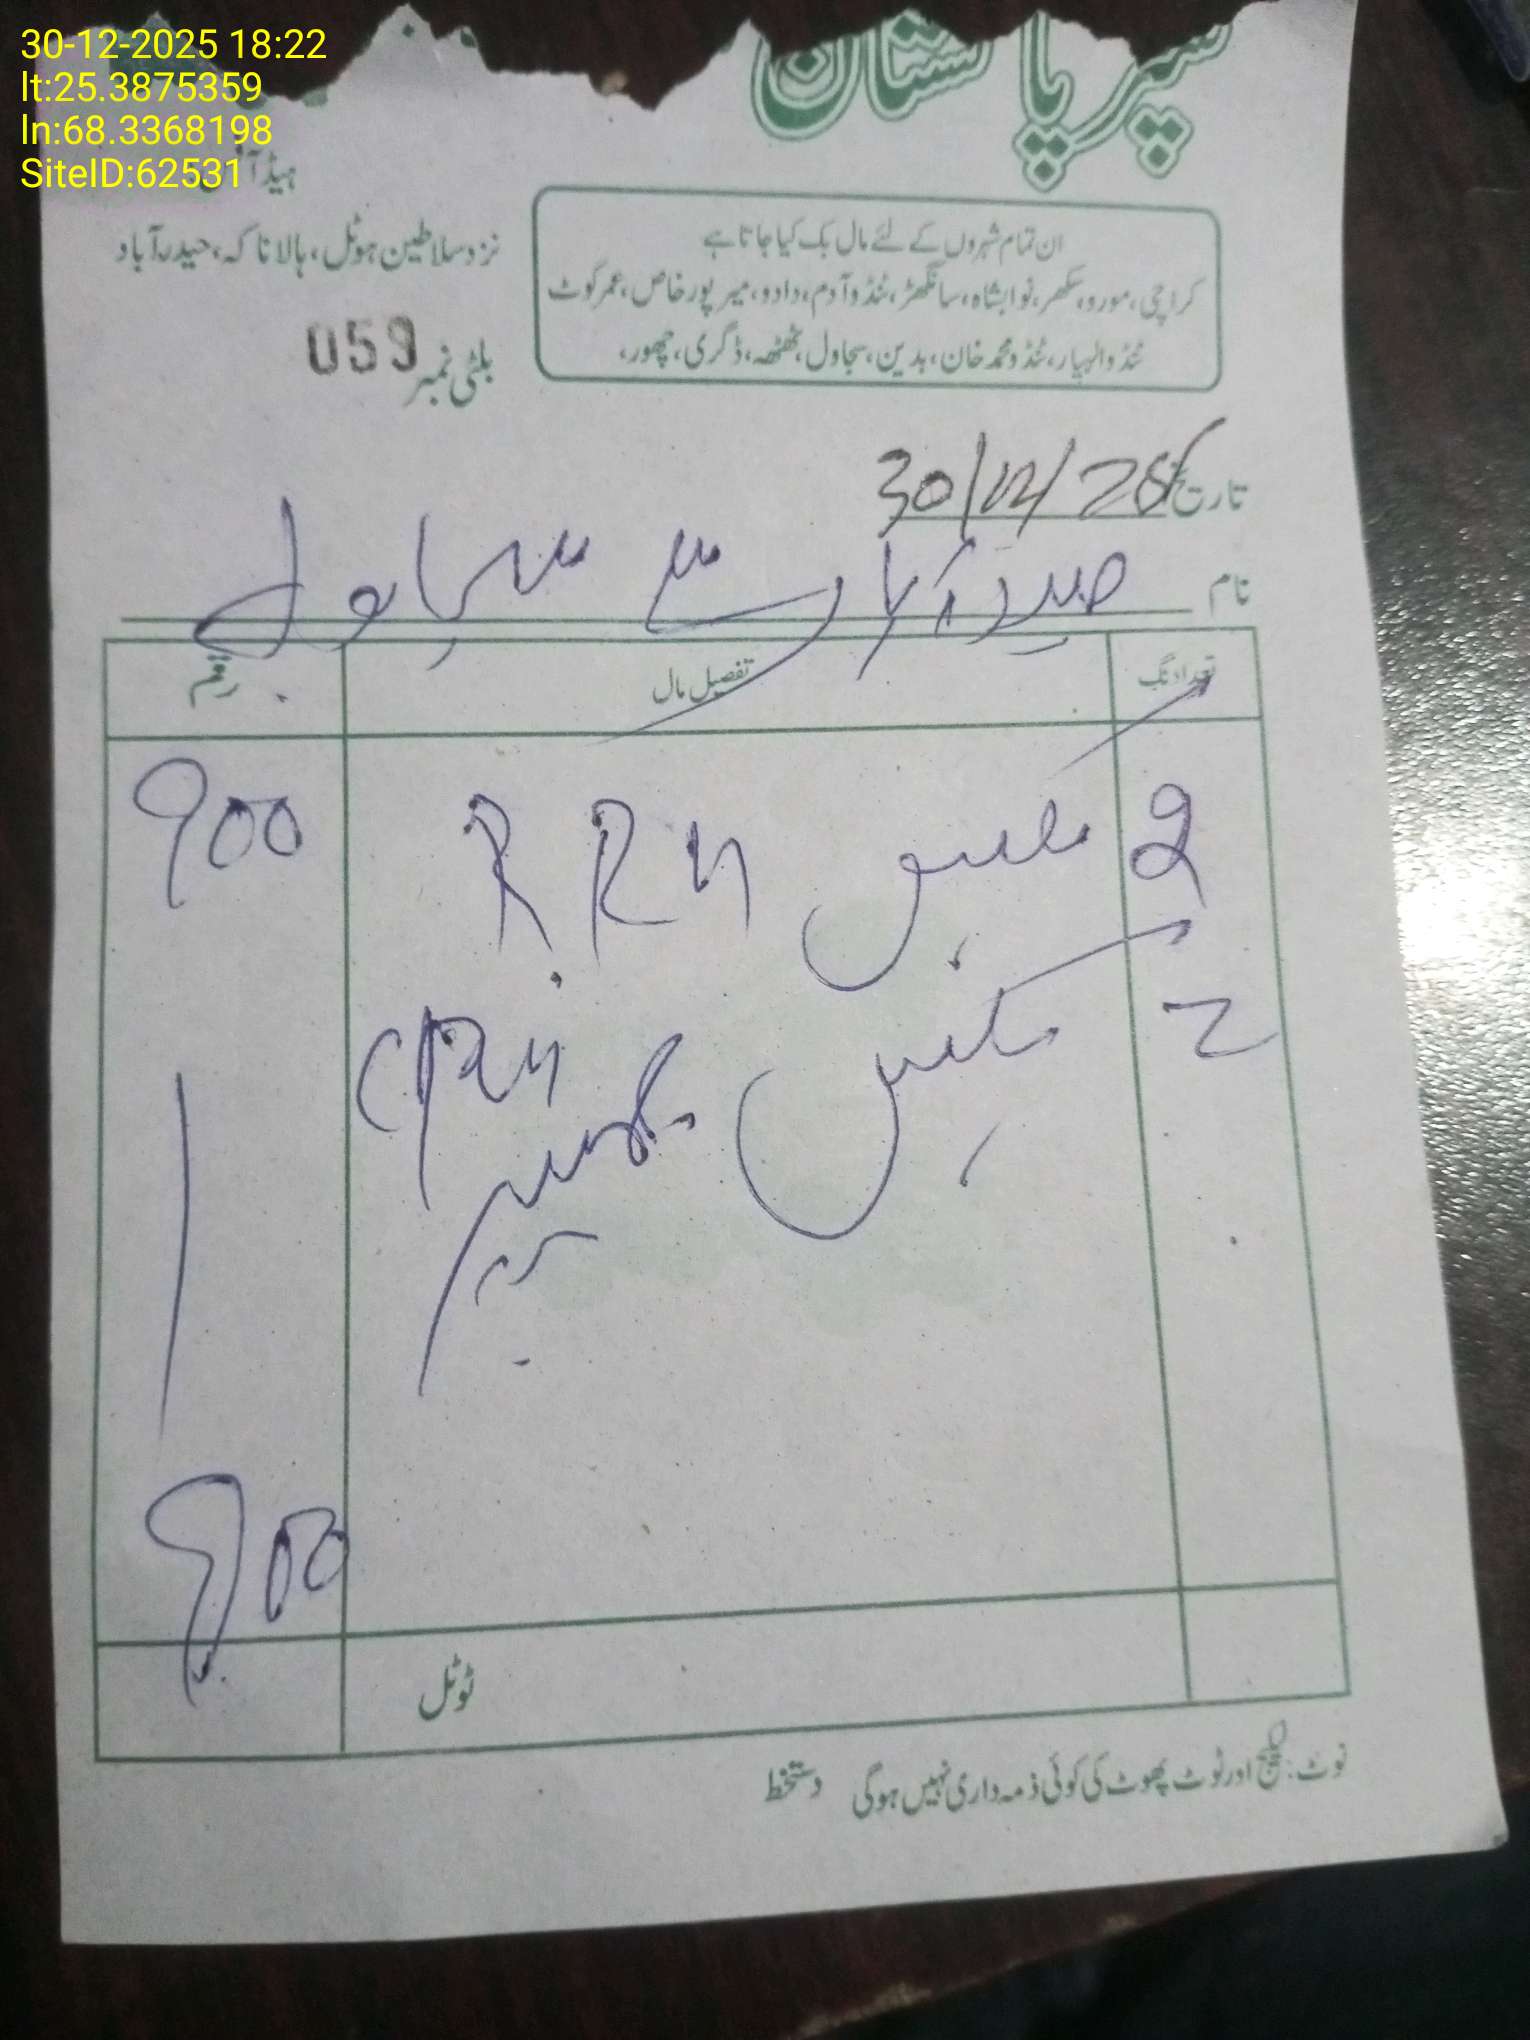 30-12-2025 18:22
lt:25.3875359
ln:68.3368198
SiteID:62531
سپر پاکستان
ہیڈ آفس
نزد سلاطین ہوٹل، ہالا ناکہ، حیدرآباد
ان تمام شہروں کے لئے مال بک کیا جاتا ہے
کراچی، مورو، سکھر، نوابشاہ، سانگھڑ، ٹنڈوآدم، دادو، میرپورخاص، عمرکوٹ
ٹنڈوالہیار، ٹنڈومحمد خان، بدین، سجاول، ٹھٹھہ، ڈگری، چھور،
بلٹی نمبر 059
تاریخ 30/12/25
نام حیدرآباد سے سجاول
تعداد نگ تفصیل مال رقم
2 بکس RRU 900
2 بکس
900
ٹوٹل
نوٹ: لیکج اور ٹوٹ پھوٹ کی کوئی ذمہ داری نہیں ہوگی دستخط